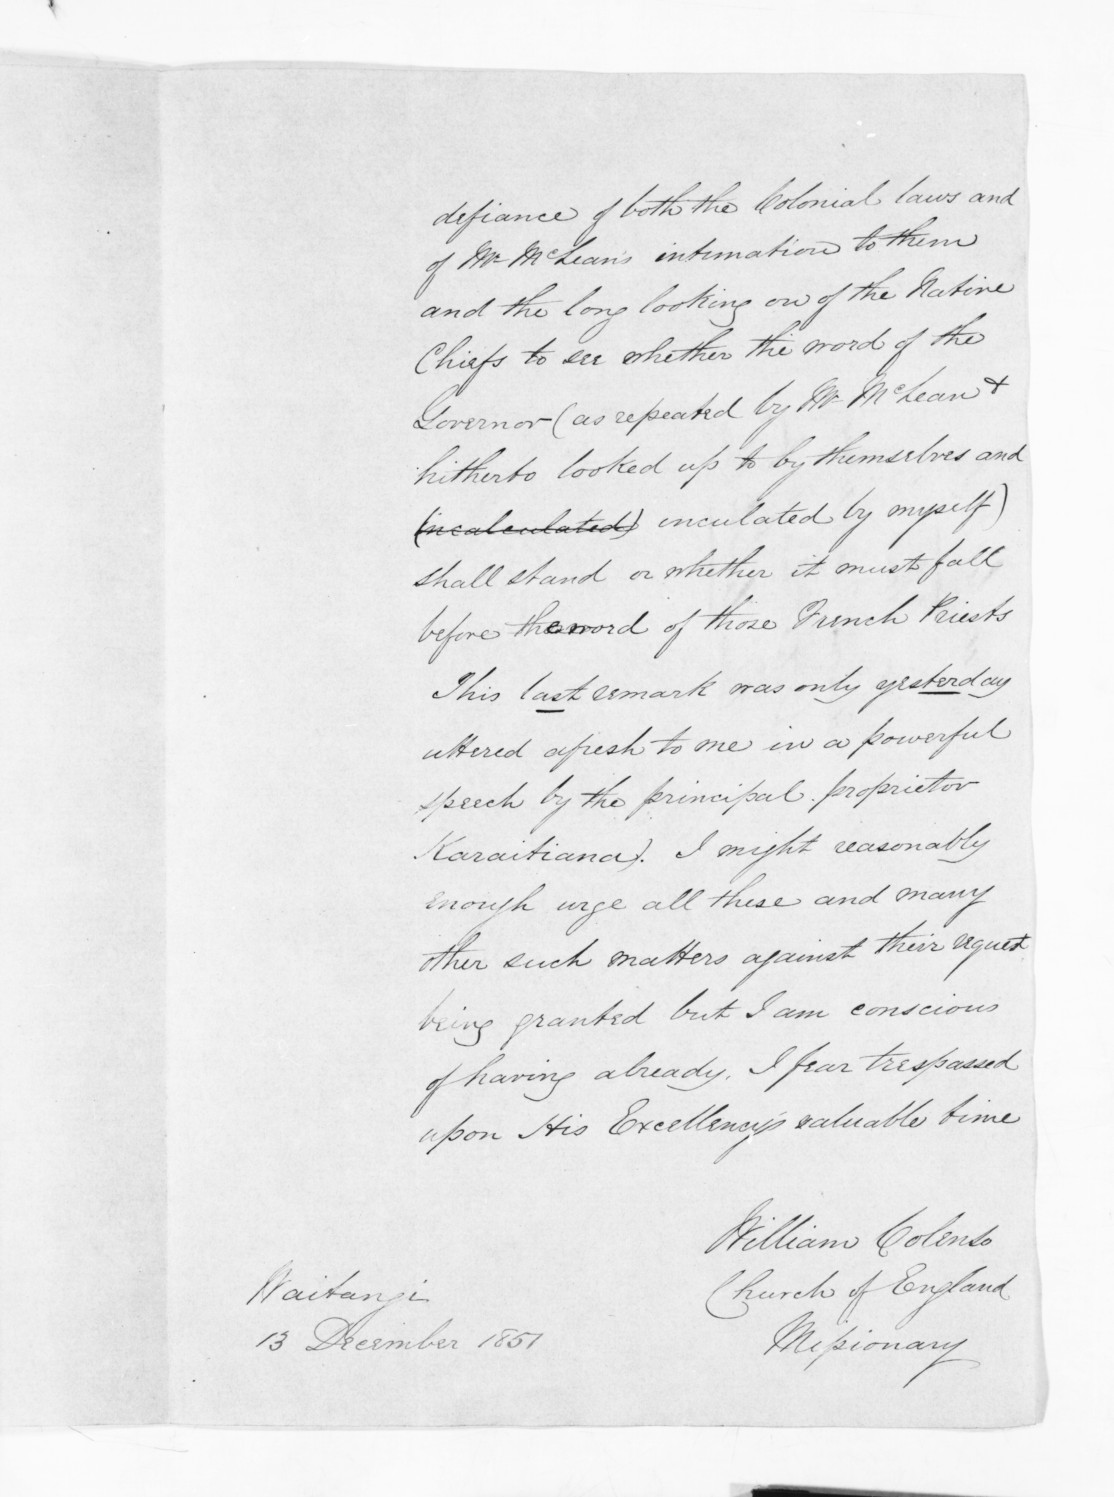 defiance of both the Colonial laws and
of Mr McLean's intimation to them
and the long looking on of the Native
Chiefs to see whether the word of the
Governor (as repeated by Mr McLean &
hitherto looked up to by themselves and
(incalculated) inculated by myself)
shall stand or whether it must fall
before the word of those French Priests
This last remark was only yesterday
uttered afresh to me in a powerful
speech by the principal proprietor
Karaitiana). I might reasonably
enough urge all these and many
other such matters against their request
being granted but I am conscious
of having already, I fear trespassed
upon His Excellency's valuable time
William Colenso
Church of England
Missionary
Waitangi
13 December 1851